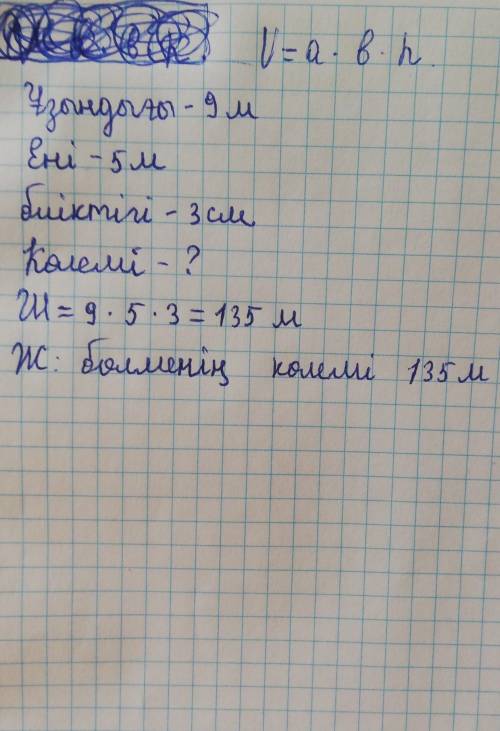 V = a · в · h.
Ұзындығы - 9 м
Ені - 5 м
биіктігі - 3 см
Көлемі - ?
Ш = 9 · 5 · 3 = 135 м
Ж: бөлменің көлемі 135 м